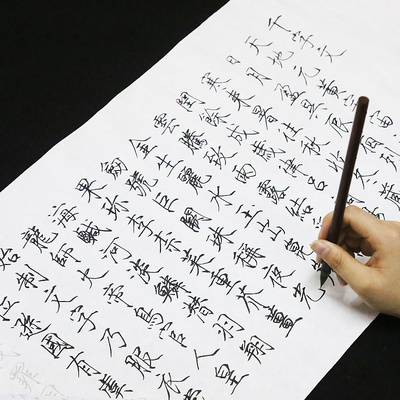 千字文
天地元黄宇宙
日月盈昃辰宿
寒来暑往秋收冬藏
閏餘成歲律呂調
雲騰致雨露結為
金生麗水玉出崑
劍號巨闕珠稱夜光
果珍李柰菜重芥薑
海鹹河淡鱗潛羽翔
龍師火帝鳥官人皇
始制文字乃服衣
位讓國有虞